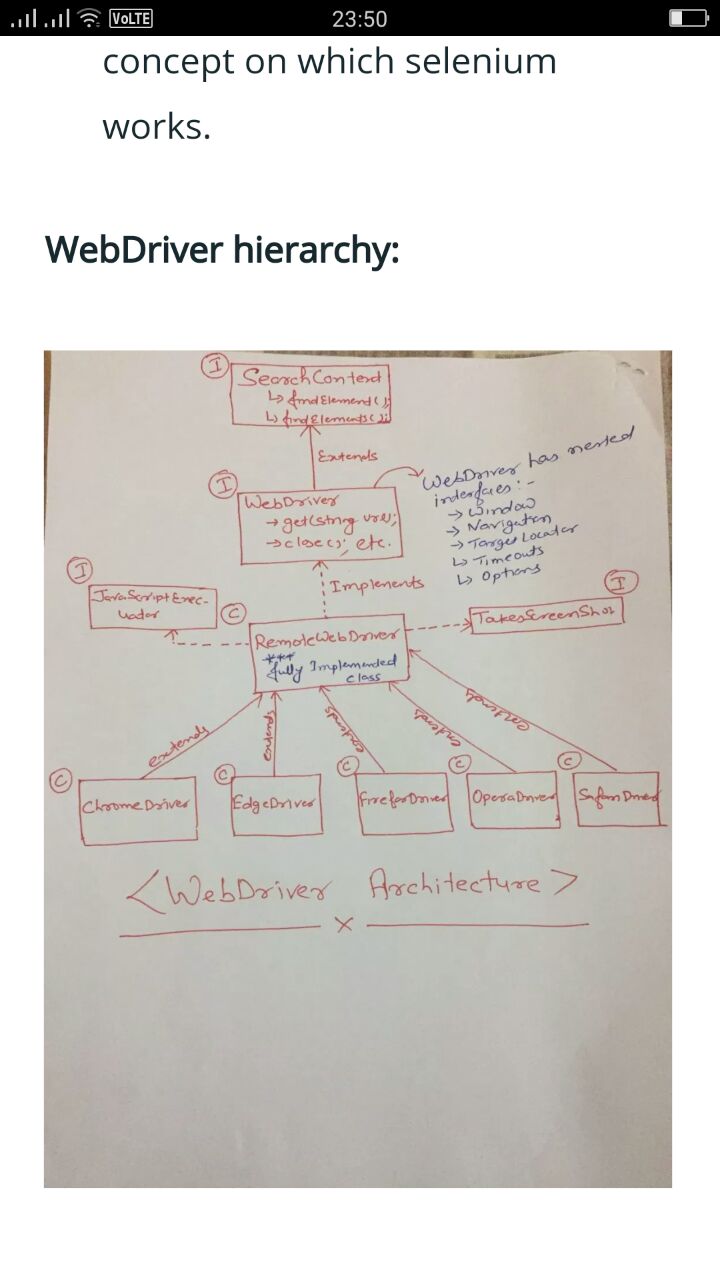 VoLTE
23:50
concept on which selenium
works.
WebDriver hierarchy:
I
SearchContext
↳ findElement();
↳ findElements();
Extends
I
WebDriver
→ get(string url);
→ close(); etc.
WebDriver has nested
interfaces:-
→ Window
→ Navigation
→ Target Locator
↳ Timeouts
↳ Options
Implements
I
JavaScriptExec-
utor
C
RemoteWebDriver
***
fully Implemented
class
I
TakesScreenShot
extends
extends
extends
extends
extends
C
ChromeDriver
C
EdgeDriver
C
FirefoxDriver
C
OperaDriver
C
Safari Driver
<WebDriver Architecture>
x